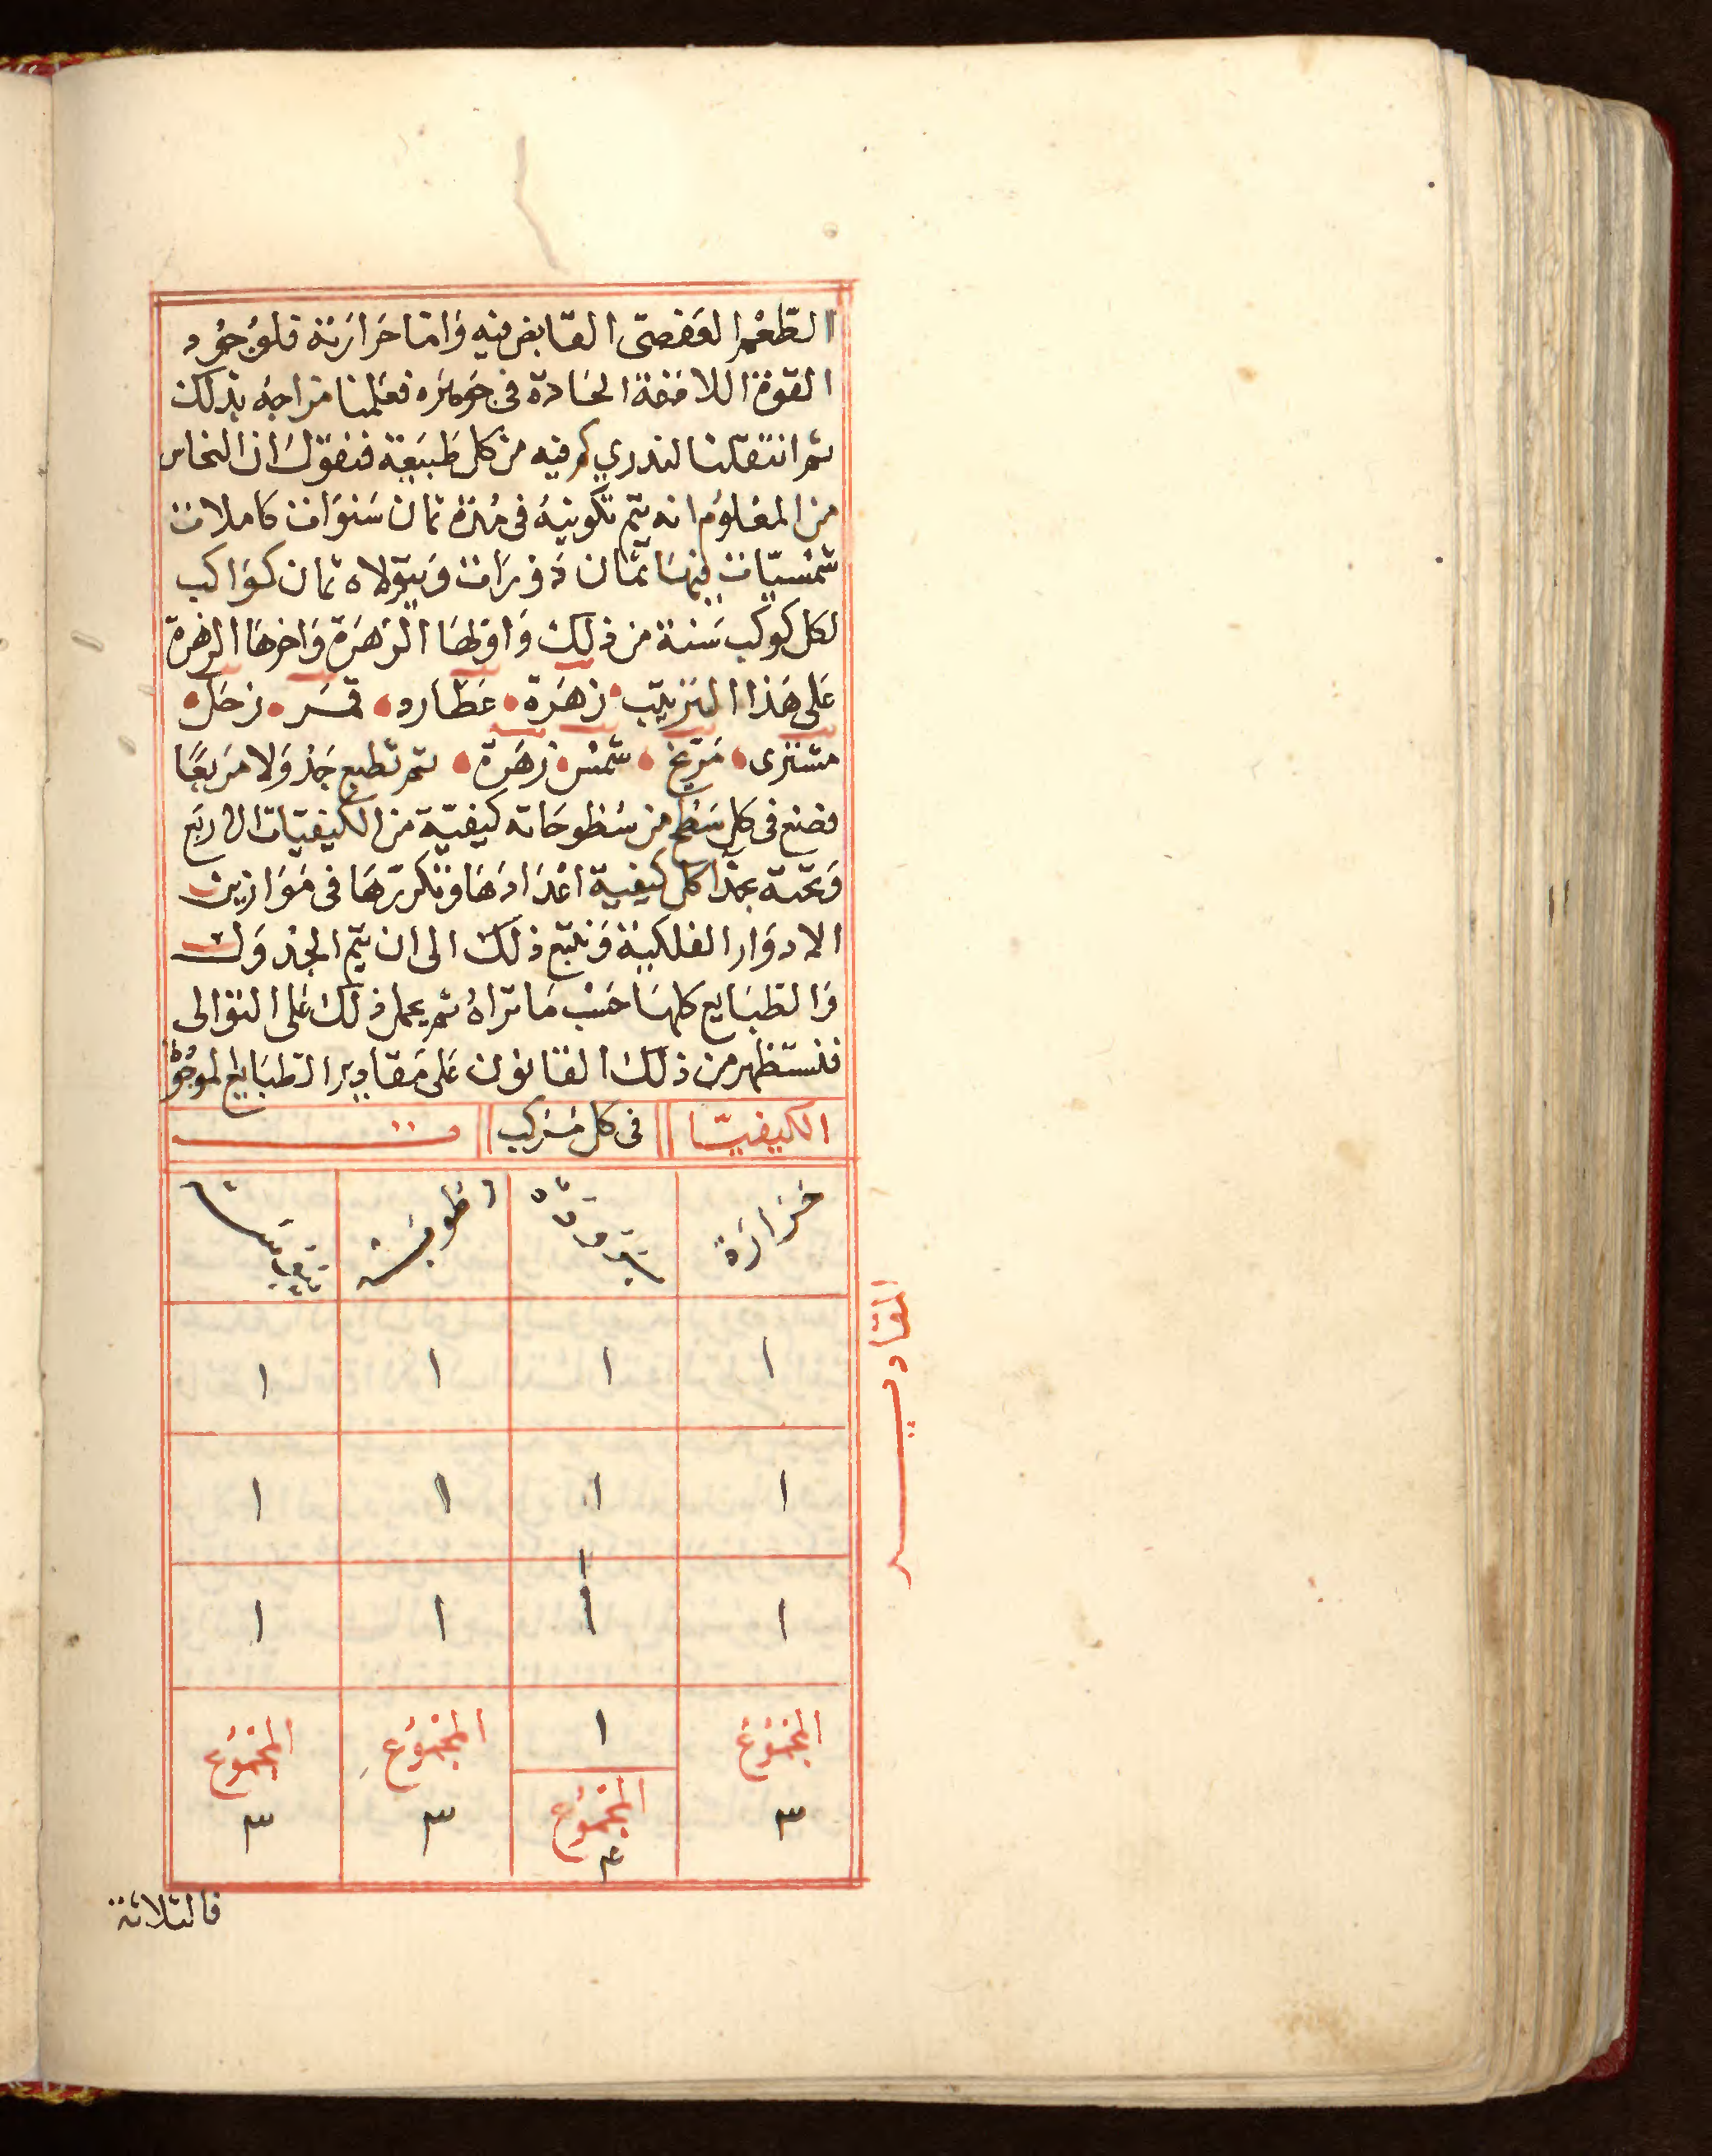 الطّعْم العَفصىّ القابض فيه وَامّا حَرارَته فلوُجُود
القوة اللاذعة الحَادة فى جَوهَرَه فعَلِمنا مزاجهُ بذلك
ثم انتقلنا لندري كم فيه من كل طَبيَعة فنقول ان النحاس
من المعْلوُم انه يتم تكوينهُ فى مُدّة ثمان سَنوَات كاملات
شمْسيّات فيهَا ثمَان دَورَات وَيتولاه ثمان كوَاكب
لكل كوكب سَنة من ذلك وَاوّلهَا الزهَرَة وَاخرهَا الزهرة
عَلى هَذا الترتيب زهَرَة عَطارد قمَر زحَل
مشترى مَرّيخ شمْس زهَرة ثم تطبع جَدْوَلا مَربعًا
فضع فى كل سَطح من سُطوحَاته كيفيّة من الكيفيّات الاربَع
وَتحته بحذا كل كيفية اعْدَادهَا وَتكررّهَا فى مَوَازين
الادوَار الفلكيَة وَتتبع ذلك الى ان يتم الجدوَل
وَالطبَايع كلهَا حَسْب مَا تراهُ ثم يعمل ذلك عَلى التوالى
فنستظهر من ذلك القانون عَلى مَقادير الطبَايع الموجُو
الكيفيّا فى كل مُركب ت
حَرارَة برودة رطوبَة يبوسَة
المقادير
١ ١ ١ ١
١ ١ ١ ١
١ ١ ١ ١
المجْموُع ١ المجْموُع المجْموُع
٣ المجْموُع ٣ ٣
٤
فالثلاثة